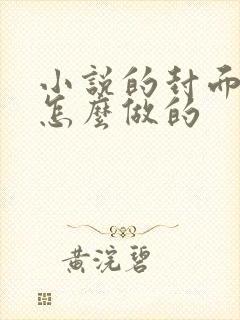 小說的封而
怎麼做的
黃浣碧